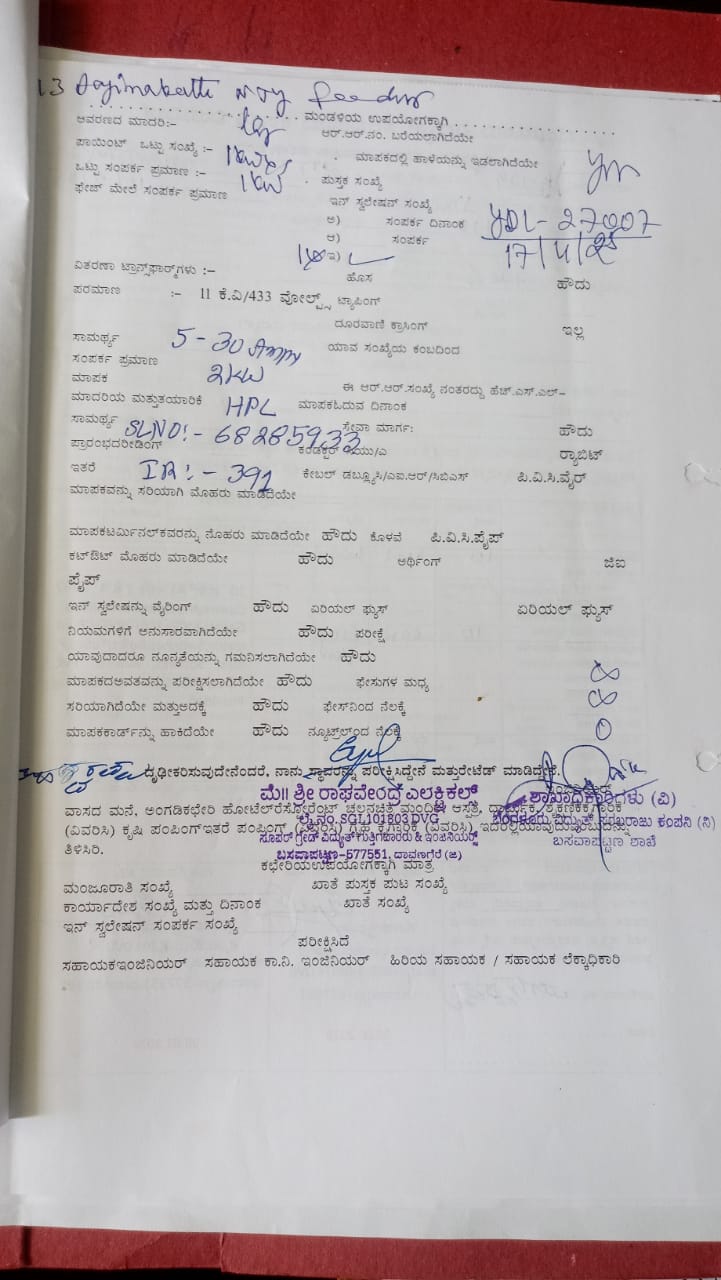 13 Aajinakatti NJY feeder
ಮಂಡಳಿಯ ಉಪಯೋಗಕ್ಕಾಗಿ
ಆವರಣದ ಮಾದರಿ:- ಆರ್.ಆರ್.ನಂ. ಬರೆಯಲಾಗಿದೆಯೇ
ಪಾಯಿಂಟ್ ಒಟ್ಟು ಸಂಖ್ಯೆ :- ಮಾಪಕದಲ್ಲಿ ಹಾಳೆಯನ್ನು ಇಡಲಾಗಿದೆಯೇ
ಒಟ್ಟು ಸಂಪರ್ಕ ಪ್ರಮಾಣ :- 1KW ಪುಸ್ತಕ ಸಂಖ್ಯೆ
ಫೇಜ್ ಮೇಲೆ ಸಂಪರ್ಕ ಪ್ರಮಾಣ ಇನ್ ಸ್ವಲೇಷನ್ ಸಂಖ್ಯೆ
ಅ) ಸಂಪರ್ಕ ದಿನಾಂಕ YDL- 27007
ಆ) ಸಂಪರ್ಕ 17/4/25
ಇ)
ವಿತರಣಾ ಟ್ರಾನ್ಸ್‌ಫಾರ್ಮ್‌ಗಳು :- ಹೊಸ ಹೌದು
ಪರಮಾಣ :- 11 ಕೆ.ವಿ/433 ವೋಲ್ಟ್ಸ್ ಟ್ಯಾಪಿಂಗ್
ದೂರವಾಣಿ ಕ್ರಾಸಿಂಗ್ ಇಲ್ಲ
ಸಾಮರ್ಥ್ಯ 5-30 Amp ಯಾವ ಸಂಖ್ಯೆಯ ಕಂಬದಿಂದ
ಸಂಪರ್ಕ ಪ್ರಮಾಣ 2KW
ಮಾಪಕ ಈ ಆರ್.ಆರ್.ಸಂಖ್ಯೆ ನಂತರದ್ದು ಹೆಚ್.ಎಸ್.ಎಲ್-
ಮಾದರಿಯ ಮತ್ತುತಯಾರಿಕೆ HPL ಮಾಪಕಓದುವ ದಿನಾಂಕ
ಸಾಮರ್ಥ್ಯ SLNO:- 68285933 ಸೇವಾ ಮಾರ್ಗ: ಹೌದು
ಪ್ರಾರಂಭದರೀಡಿಂಗ್ ಕಂಡಕ್ಟರ್ ರ‍್ಯಾಬಿಟ್
ಇತರೆ IR:- 391 ಕೇಬಲ್ ಡಬ್ಲ್ಯೂಸಿ/ಎಐ.ಆರ್/ಸಿಬಿಎಸ್ ಪಿ.ವಿ.ಸಿ.ವೈರ್
ಮಾಪಕವನ್ನು ಸರಿಯಾಗಿ ಮೊಹರು ಮಾಡಿದೆಯೇ
ಮಾಪಕಟರ್ಮಿನಲ್‌ಕವರನ್ನು ನೊಹರು ಮಾಡಿದೆಯೇ ಹೌದು ಕೊಳವೆ ಪಿ.ವಿ.ಸಿ.ಪೈಪ್
ಕಟ್‌ಔಟ್ ಮೊಹರು ಮಾಡಿದೆಯೇ ಹೌದು ಅರ್ಥಿಂಗ್ ಜಿಐ
ಪೈಪ್
ಇನ್ ಸ್ವಲೇಷನ್ನು ವೈರಿಂಗ್ ಹೌದು ಏರಿಯಲ್ ಫ್ಯುಸ್ ಏರಿಯಲ್ ಫ್ಯುಸ್
ನಿಯಮಗಳಿಗೆ ಅನುಸಾರವಾಗಿದೆಯೇ ಹೌದು ಪರೀಕ್ಷೆ
ಯಾವುದಾದರೂ ನೂನ್ಯತೆಯನ್ನು ಗಮನಿಸಲಾಗಿದೆಯೇ ಹೌದು
ಮಾಪಕದಅವತವನ್ನು ಪರೀಕ್ಷಿಸಲಾಗಿದೆಯೇ ಹೌದು ಫೇಸುಗಳ ಮಧ್ಯ
ಸರಿಯಾಗಿದೆಯೇ ಮತ್ತುಅದಕ್ಕೆ ಹೌದು ಫೇಸ್‌ನಿಂದ ನೆಲಕ್ಕೆ
ಮಾಪಕಕಾರ್ಡ್‌ನ್ನು ಹಾಕಿದೆಯೇ ಹೌದು ನ್ಯೂಟ್ರಲ್‌ಂದ ನೆಲಕ್ಕೆ
ದೃಢೀಕರಿಸುವುದೇನೆಂದರೆ, ನಾನು ಸ್ಥಾವರನ್ನು ಪರೀಕ್ಷಿಸಿದ್ದೇನೆ ಮತ್ತುರೇಟೆಡ್ ಮಾಡಿದ್ದೇನೆ.
ಮೆ॥ ಶ್ರೀ ರಾಘವೇಂದ್ರ ಎಲಕ್ಟ್ರಿಕಲ್ಸ್ ಶಾಖಾಧಿಕಾರಿಗಳು (ವಿ)
ವಾಸದ ಮನೆ, ಅಂಗಡಿಕಛೇರಿ ಹೋಟೆಲ್‌ರೆಸ್ಟೋರೆಂಟ್ ಚಲನಚಿತ್ರ ಮಂದಿರ ಆಸ್ಪತ್ರೆ,
ಲೈ.ನಂ. SGL101803 DVG ಬೆಂಗಳೂರು ವಿದ್ಯುತ್ ಸರಬರಾಜು ಕಂಪನಿ (ನಿ)
(ವಿವರಿಸಿ) ಕೃಷಿ ಪಂಪಿಂಗ್‌ಇತರೆ ಪಂಪಿಂಗ್ (ವಿವರಿಸಿ) ಗೃಹ ಕೈಗಾರಿಕೆ (ವಿವರಿಸಿ)
ಸೂಪರ್ ಗ್ರೇಡ್ ವಿದ್ಯುತ್ ಗುತ್ತಿಗೆದಾರರು & ಇಂಜಿನಿಯರ್ಸ್ ಬಸವಾಪಟ್ಟಣ ಶಾಖೆ
ತಿಳಿಸಿರಿ. ಬಸವಾಪಟ್ಟಣ-577551, ದಾವಣಗೆರೆ (ಜಿ)
ಕಛೇರಿಯಉಪಯೋಗಕ್ಕಾಗಿ ಮಾತ್ರ
ಮಂಜೂರಾತಿ ಸಂಖ್ಯೆ ಖಾತೆ ಪುಸ್ತಕ ಪುಟ ಸಂಖ್ಯೆ
ಕಾರ್ಯಾದೇಶ ಸಂಖ್ಯೆ ಮತ್ತು ದಿನಾಂಕ ಖಾತೆ ಸಂಖ್ಯೆ
ಇನ್ ಸ್ವಲೇಷನ್ ಸಂಪರ್ಕ ಸಂಖ್ಯೆ
ಪರೀಕ್ಷಿಸಿದೆ
ಸಹಾಯಕಇಂಜಿನಿಯರ್ ಸಹಾಯಕ ಕಾ.ನಿ. ಇಂಜಿನಿಯರ್ ಹಿರಿಯ ಸಹಾಯಕ / ಸಹಾಯಕ ಲೆಕ್ಕಾಧಿಕಾರಿ